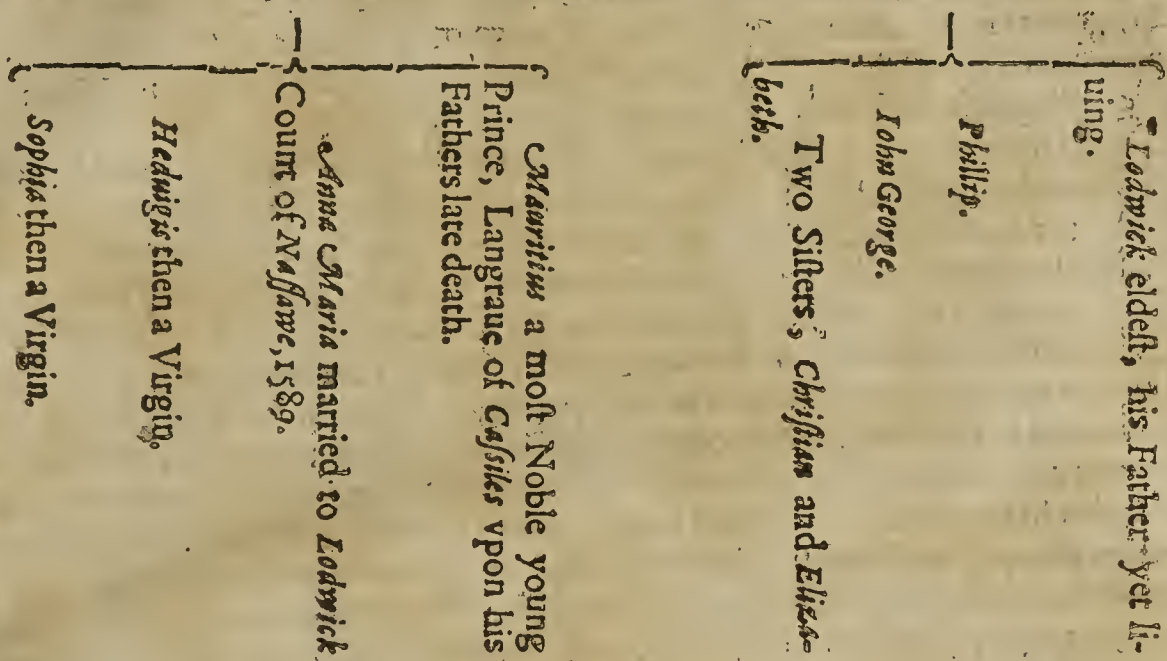 Lodwick eldeſt, his Father yet li-
uing.
Phillip.
Iohn George.
Two Siſters, Chriſtian and Eliza-
beth.
Mauritius a moſt Noble young
Prince, Langraue of Caſsiles vpon his
Fathers late death.
Anna Maria married to Lodwick
Count of Naſſawe, 1589.
Heduigis then a Virgin.
Sophia then a Virgin.